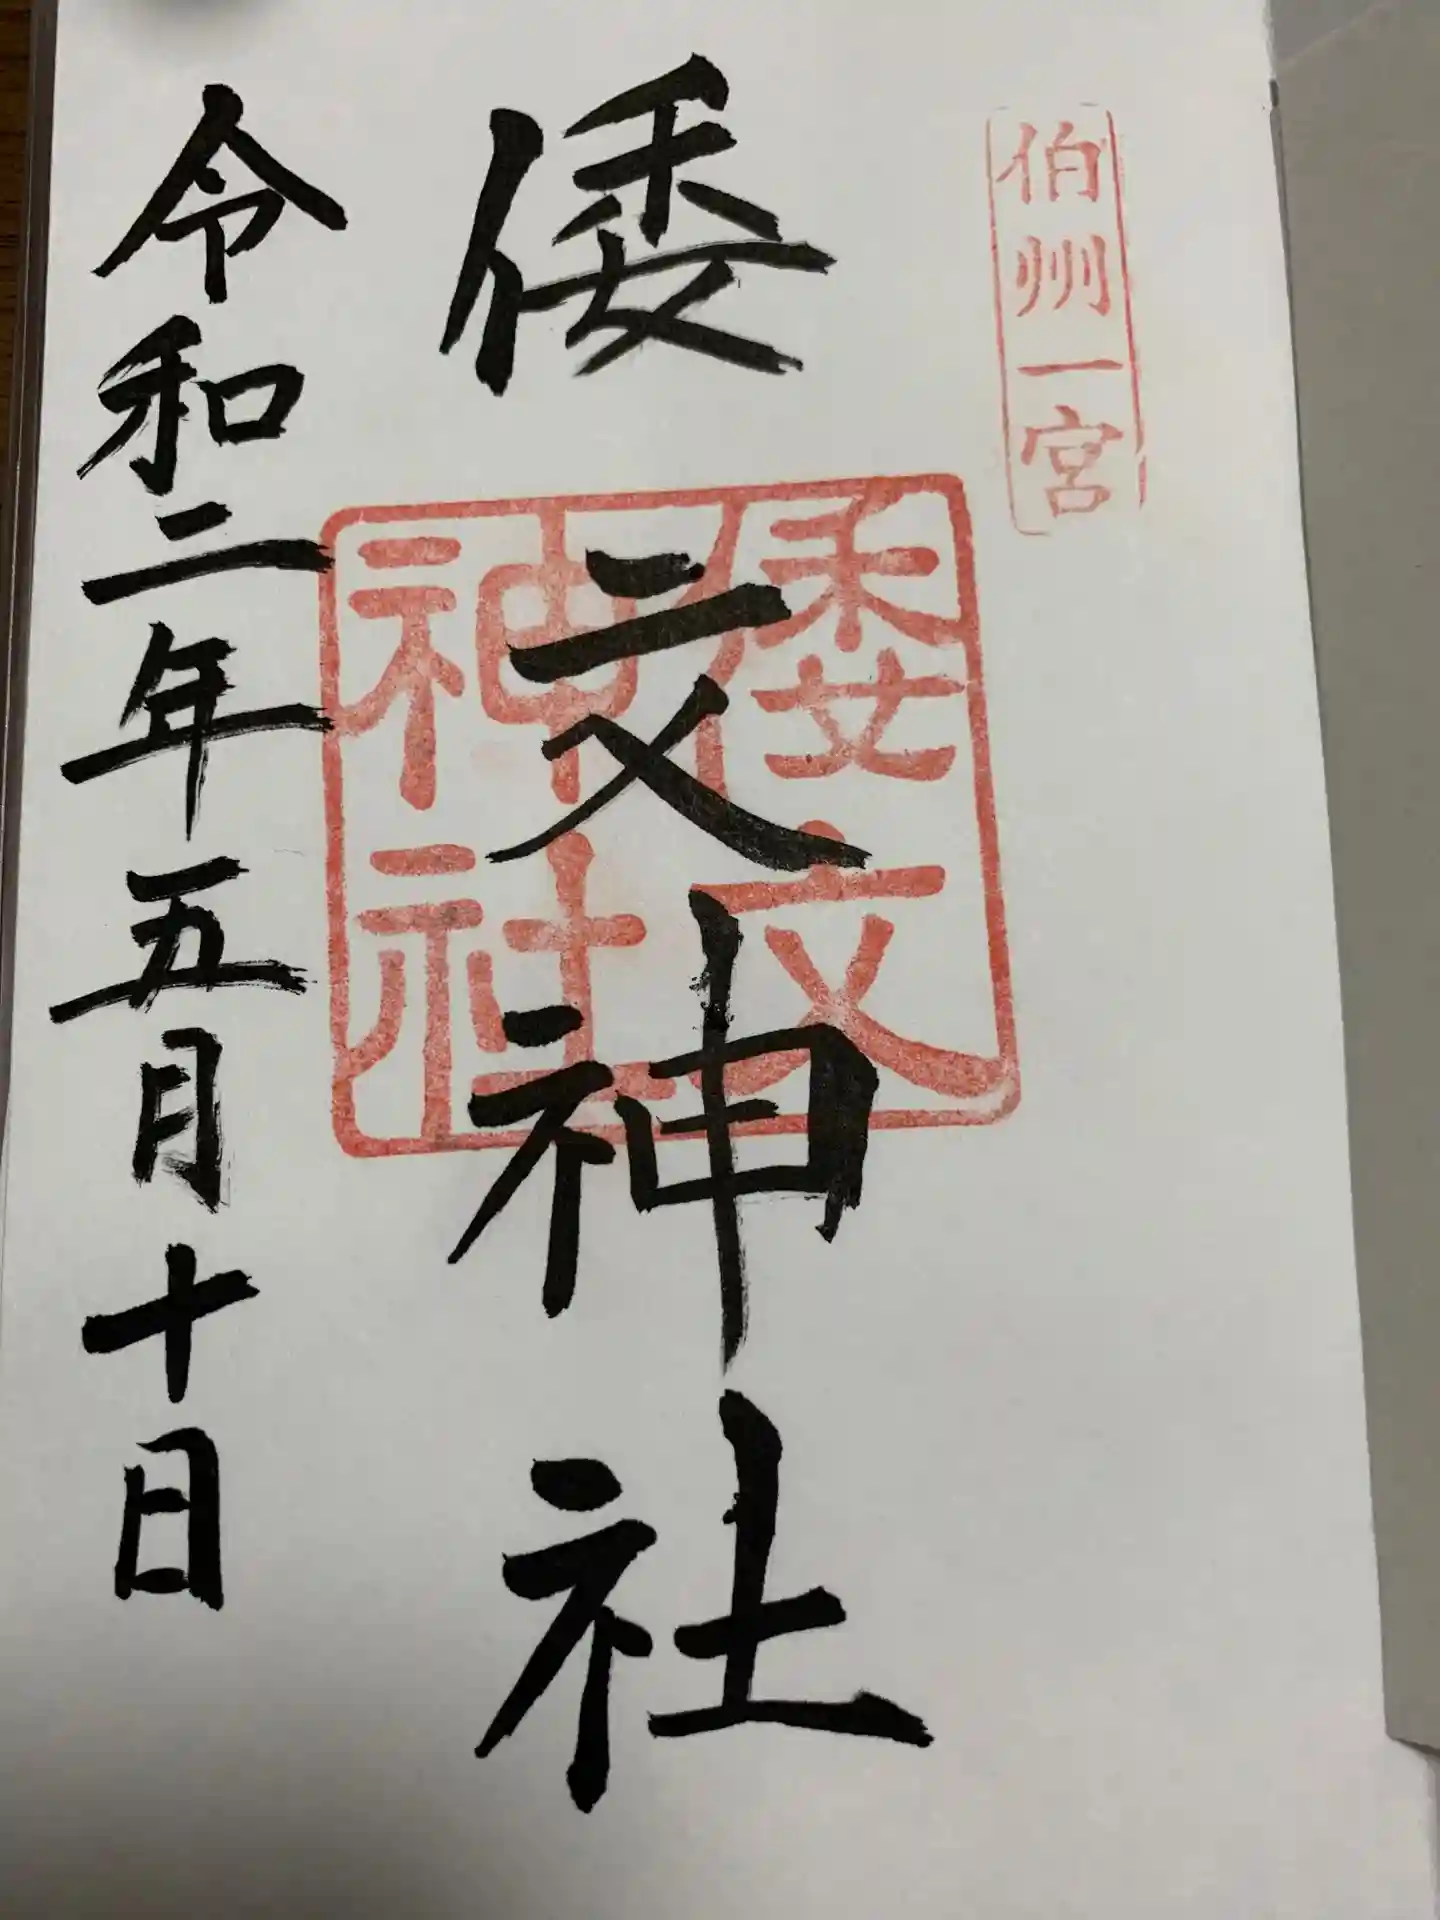 伯州一宮
倭文神社
倭文
神社
令和二年五月十日